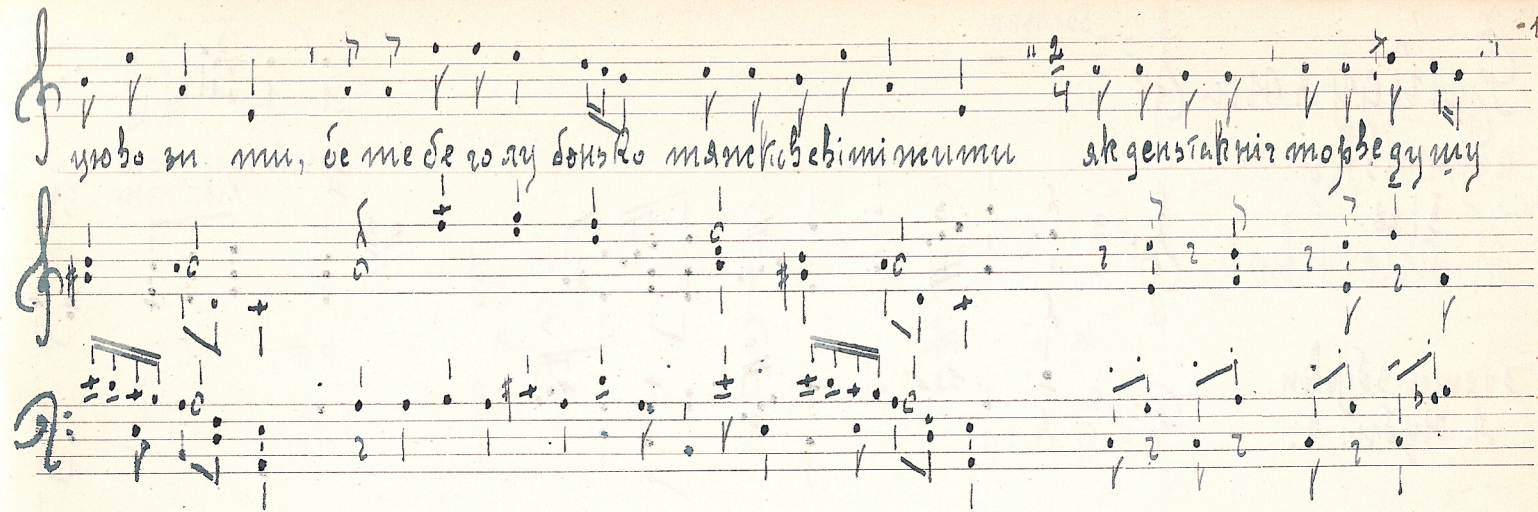 цюво зи ти, бе те бе го лу бонько тяжко в сві ті жити як день так ніч тор ве ду шу